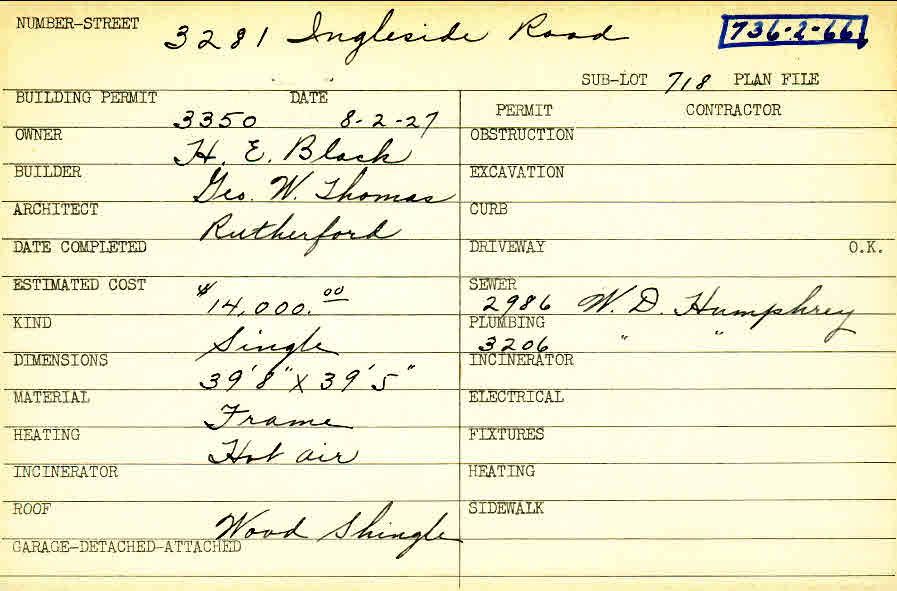 NUMBER-STREET 3281 Ingleside Road 736-2-66
SUB-LOT 718 PLAN FILE
BUILDING PERMIT DATE
3350 8-2-27
PERMIT CONTRACTOR
OWNER H. E. Black
OBSTRUCTION
BUILDER Geo. W. Thomas
EXCAVATION
ARCHITECT Rutherford
CURB
DATE COMPLETED
DRIVEWAY O.K.
ESTIMATED COST $14,000.00
SEWER
2986 W. D. Humphrey
KIND Single
PLUMBING
3206 " "
DIMENSIONS 39'8" X 39'5"
INCINERATOR
MATERIAL Frame
ELECTRICAL
HEATING Hot air
FIXTURES
INCINERATOR
HEATING
ROOF Wood Shingle
SIDEWALK
GARAGE-DETACHED-ATTACHED